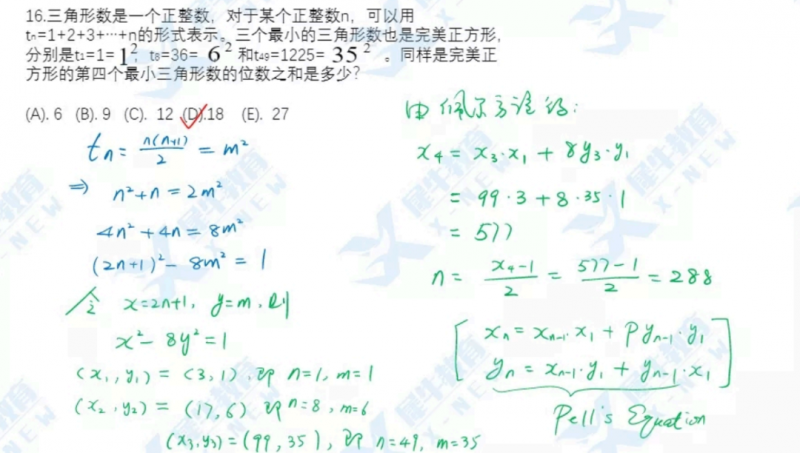 16.三角形数是一个正整数，对于某个正整数n，可以用
tₙ=1+2+3+…+n的形式表示。三个最小的三角形数也是完美正方形,
分别是t₁=1= 1²; t₈=36= 6² 和t₄₉=1225= 35² 。同样是完美正
方形的第四个最小三角形数的位数之和是多少?
(A). 6 (B). 9 (C). 12 (D).18 (E). 27
tₙ = n(n+1)/2 = m²
⇒ n²+n = 2m²
4n²+4n = 8m²
(2n+1)² - 8m² = 1
令 x=2n+1, y=m, 则
x² - 8y² = 1
(x₁,y₁) = (3,1), 即 n=1, m=1
(x₂,y₂) = (17,6) 即 n=8, m=6
(x₃,y₃) = (99,35), 即 n=49, m=35
由佩尔方程得:
x₄ = x₃·x₁ + 8y₃·y₁
= 99·3+8·35·1
= 577
n = (x₄-1)/2 = (577-1)/2 = 288
xₙ = xₙ₋₁·x₁ + Pyₙ₋₁·y₁
yₙ = xₙ₋₁·y₁ + yₙ₋₁·x₁
Pell's Equation
犀牛教育
X-NEW